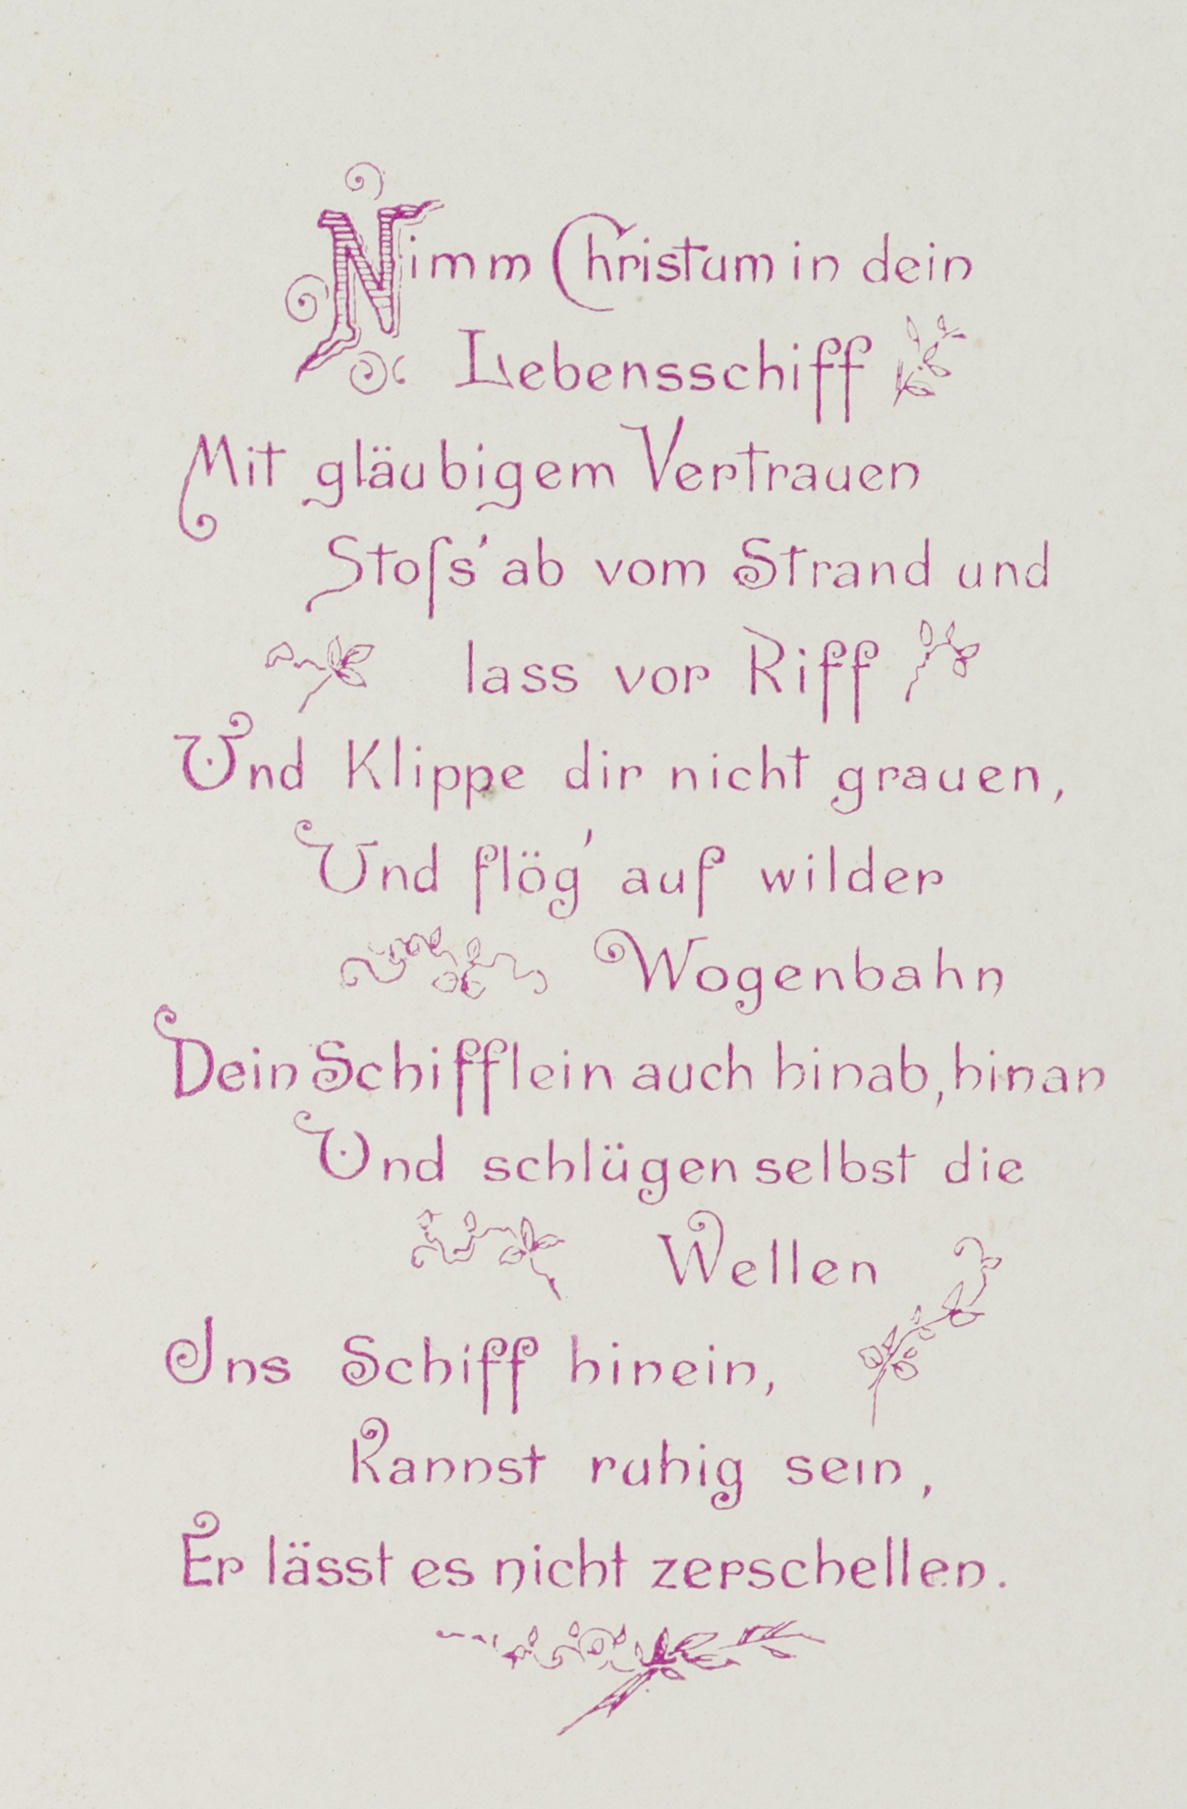 Nimm Christum in dein
Lebensschiff
Mit gläubigem Vertrauen
Stoſs' ab vom Strand und
lass vor Riff
Und Klippe dir nicht grauen,
Und flög' auf wilder
Wogenbahn
Dein Schifflein auch hinab, hinan
Und schlügen selbst die
Wellen
Ins Schiff hinein,
Kannst ruhig sein,
Er lässt es nicht zerschellen.